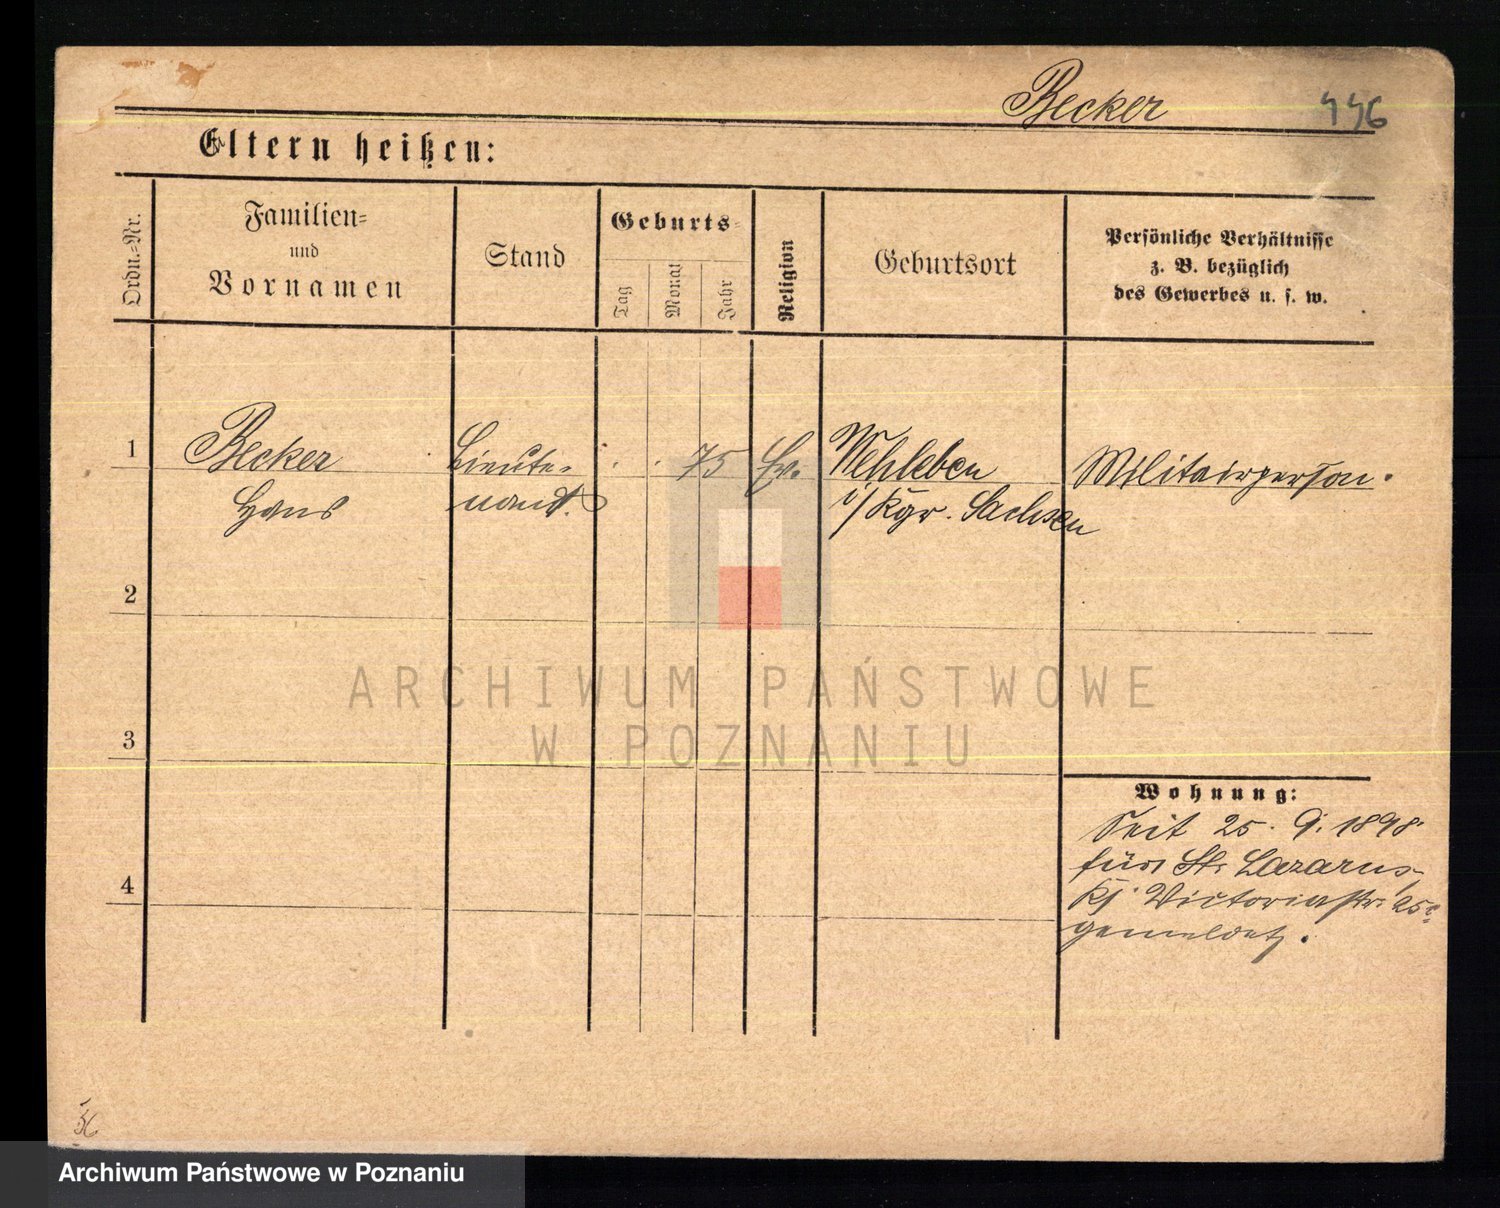 Becker
446
Eltern heißen:
Ordn.-Nr.
Familien-
und
Vornamen
Stand
Geburts-
Tag
Monat
Jahr
Religion
Geburtsort
Persönliche Verhältnisse
z. B. bezüglich
des Gewerbes u. s. w.
1
Becker
Hans
Lieute-
nant.
75
Ev.
Wehleben
i/ Kgr. Sachsen
Militairperson.
2
3
4
Wohnung:
Seit 25. 9. 1898
für St. Lazarus,
Victoriastr. 25
gemeldet.
ARCHIWUM PAŃSTWOWE
W POZNANIU
Archiwum Państwowe w Poznaniu